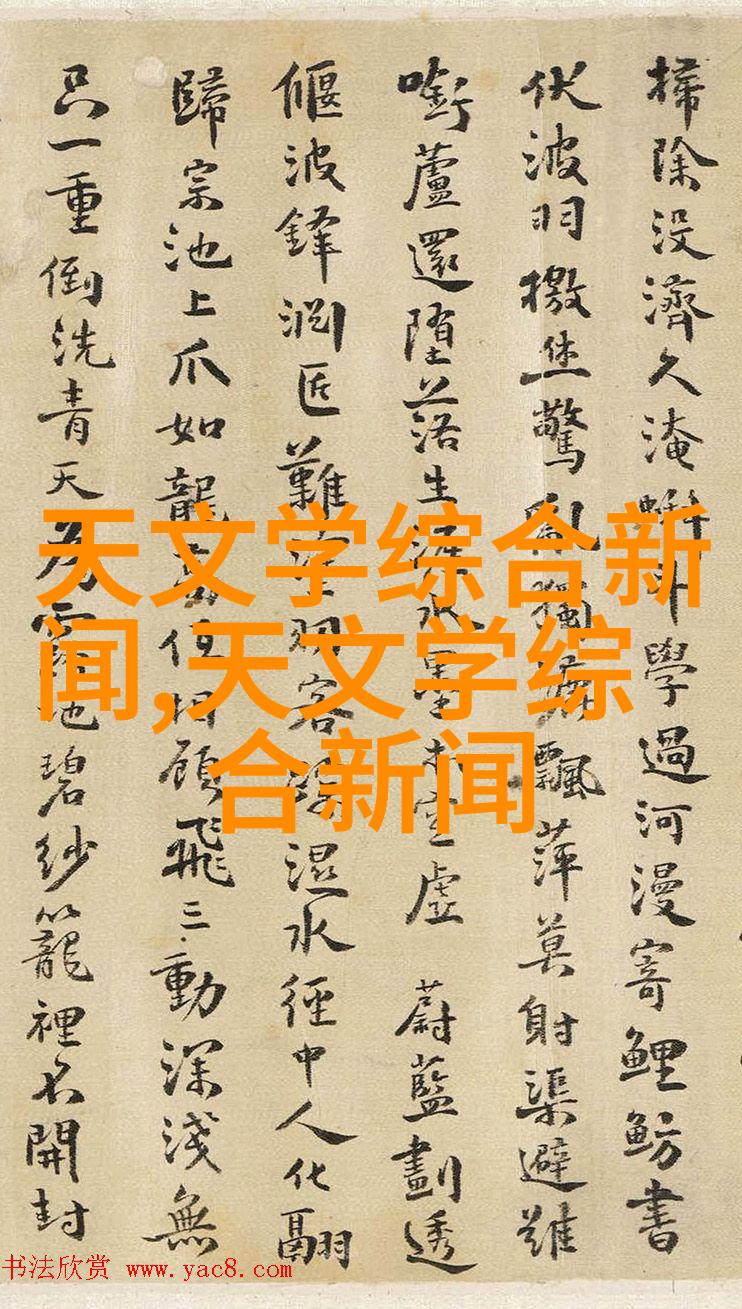 掃除没濟久淹學過河漫寄鯉魴書
伏波羽檄驚亂獨飄萍莫射渠避難
啣蘆還墮落生涯水墨空虛 蔚藍劃透
偃波鋒潤匠難羽客濕水徑中人化翮
歸宗池上爪如龍低相顧飛三動深淺無
只一重倒洗青天為池碧紗籠裡不開封
天文学综合新
闻,天文学综
合新闻
书法欣赏 www.yac8.com